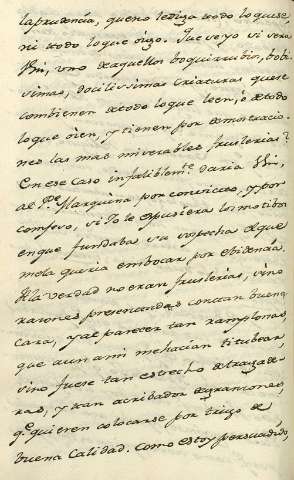 la prudencia, que no lediga todo lo quese,
ni todo lo que óigo. Fue veyo si vera
Vm, uno de aquellos boquirrubios, bobi
simas, docilisimas criaturas que se
convienen de todo lo que leen, ó de todo
lo que óien, y tienen por demostracio.
nes las mas miserables fruslerias?
En ese caso infaliblemte. daria Vm,
al Pe. Marquina por convicto, y por
comfeso, si Yo le expusiera los motibos
en que fundaba su sospecha el que
mela queria embocar por ebidencia.
A la verdad no eran fruslerias, sino
razones presentadas con tan buena
cara, y al parecer tan ramplonas,
que aun ami mehacian titubear,
sino fuese tan estrecho de tragade-
ras, y tan acribador de granzones,
qe. quieren colocarse por trigo de
buena Calidad. Como estoy persuadido,